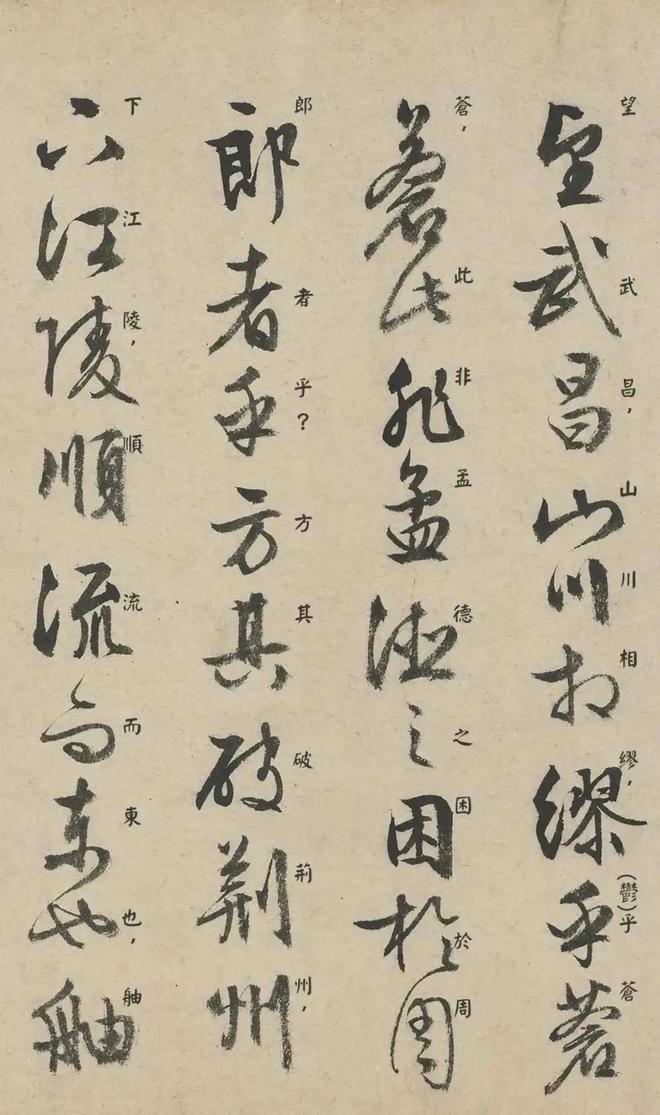 望武昌，山川相繆，(鬱)乎蒼
望武昌山川相繆乎蒼
蒼，此非孟德之困於周
蒼此非孟德之困於周
郎者乎？方其破荊州，
郎者乎方其破荊州
下江陵，順流而東也，舳
下江陵順流而東也舳